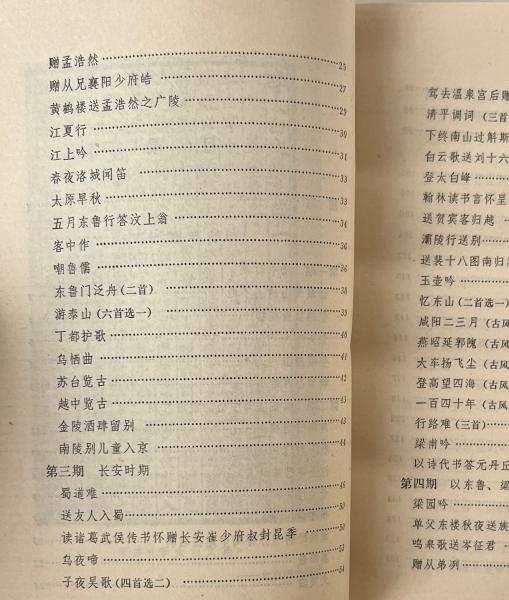 赠孟浩然 25
赠从兄襄阳少府皓 27
黄鹤楼送孟浩然之广陵 29
江夏行 30
江上吟 31
春夜洛城闻笛 33
太原早秋 33
五月东鲁行答汶上翁 34
客中作 36
嘲鲁儒 36
东鲁门泛舟(二首) 38
游泰山(六首选一) 39
丁都护歌 40
乌栖曲 41
苏台览古 42
越中览古 43
金陵酒肆留别 43
南陵别儿童入京 44
第三期 长安时期
蜀道难 46
送友人入蜀 50
读诸葛武侯传书怀赠长安崔少府叔封昆季 51
乌夜啼 53
子夜吴歌(四首选二) 54
驾去温泉宫后赠
清平调词(三首
下终南山过斛斯
白云歌送刘十六
登太白峰
翰林读书言怀呈
送贺宾客归越
灞陵行送别
送裴十八图南归
玉壶吟
忆东山(二首选一)
咸阳二三月(古风
燕昭延郭隗(古风
大车扬飞尘(古风
登高望四海(古风
一百四十年(古风
行路难(三首)
梁甫吟
以诗代书答元丹丘
第四期 以东鲁、梁
梁园吟
单父东楼秋夜送族
鸣皋歌送岑征君
赠从弟冽